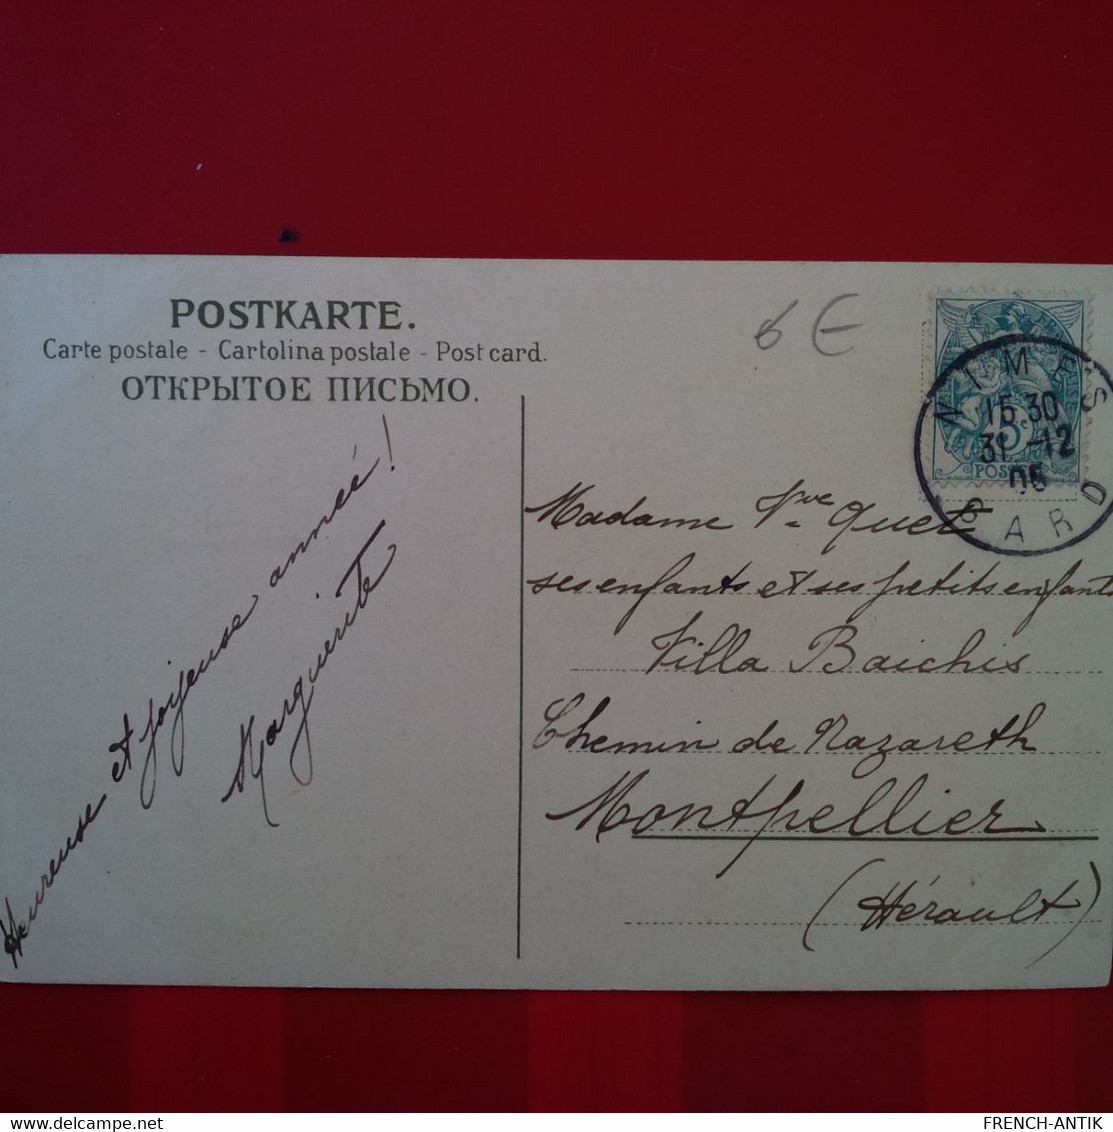 POSTKARTE.
Carte postale - Cartolina postale - Post card.
ОТКРЫТОЕ ПИСЬМО.
6 €
NIMES
15 30
31 -12
05
GARD
5c
POSTES
Heureuse et joyeuse année!
Marguerite
Madame Vve Quet
ses enfants et ses petits enfants
Villa Baichis
Chemin de Nazareth
Montpellier
(Hérault)
delcampe.net
FRENCH-ANTIK